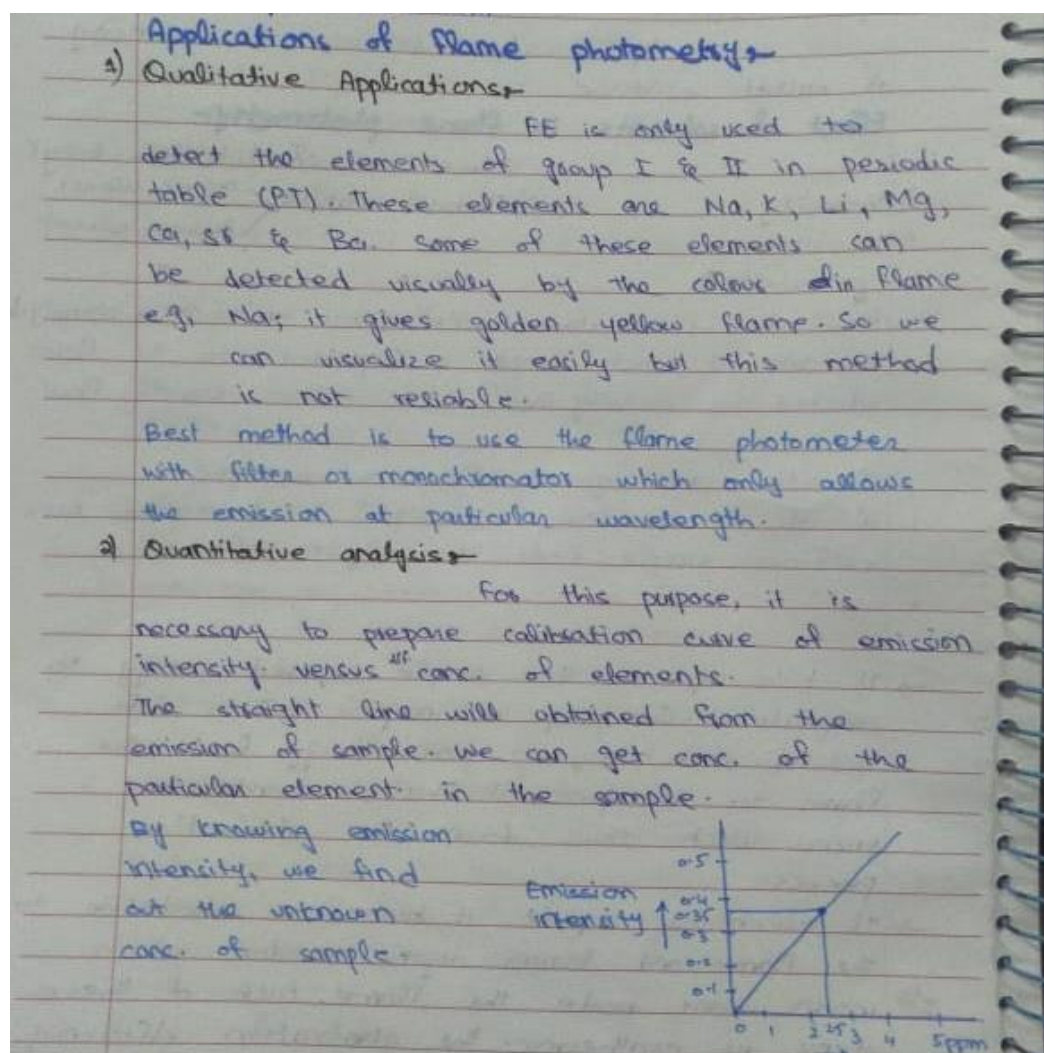 Applications of flame photometry
1) Qualitative Applications
FE is only used to
detect the elements of group I & II in periodic
table (PT). These elements are Na, K, Li, Mg,
Ca, Sr & Ba. Some of these elements can
be detected visually by the colour in flame
e.g. Na; it gives golden yellow flame. So we
can visualize it easily but this method
is not reliable.
Best method is to use the flame photometer
with filter or monochromator which only allows
the emission at particular wavelength.
2) Quantitative analysis
For this purpose, it is
necessary to prepare calibration curve of emission
intensity versus conc. of elements.
The straight line will obtained from the
emission of sample. we can get conc. of the
particular element in the sample.
By knowing emission
intensity, we find
out the unknown
conc. of sample.
Emission
intensity
0.5
0.4
0.35
0.3
0.2
0.1
0 1 2 2.5 3 4 5ppm